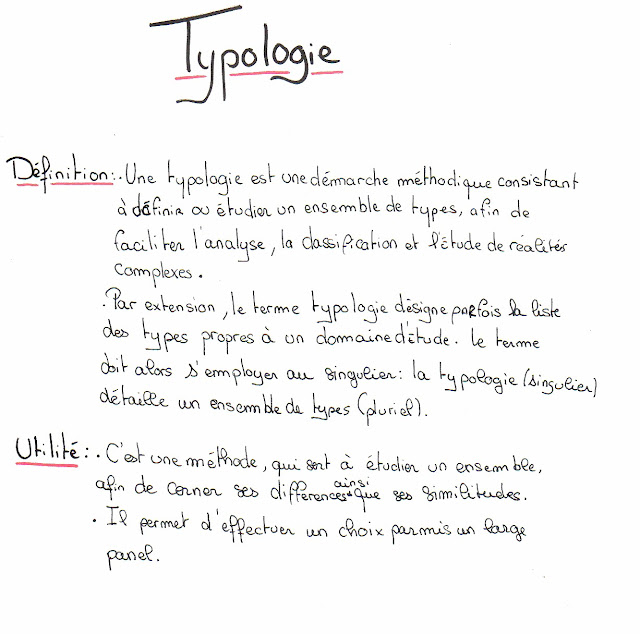 Typologie
Définition:. Une typologie est une démarche méthodique consistant
à définir ou étudier un ensemble de types, afin de
faciliter l'analyse, la classification et l'étude de réalités
complexes.
. Par extension, le terme typologie désigne parfois la liste
des types propres à un domaine d'étude. Le terme
doit alors s'employer au singulier: la typologie (singulier)
détaille un ensemble de types (pluriel).
Utilité:. C'est une méthode, qui sert à étudier un ensemble,
afin de cerner ses différences ainsi que ses similitudes.
. Il permet d'effectuer un choix parmis un large
panel.